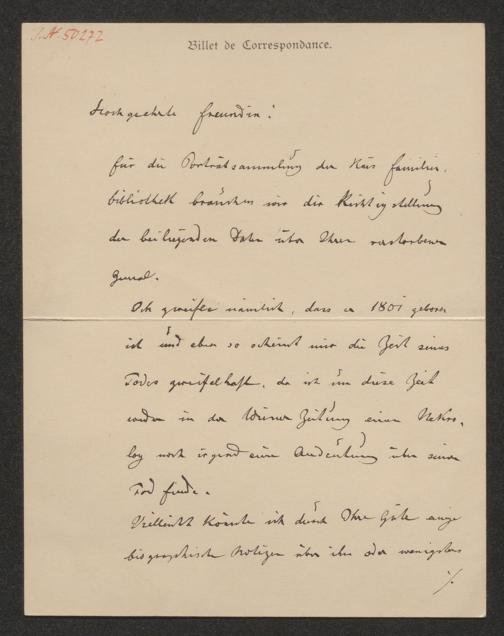 I.N. 50272
Billet de Correspondance.
Hochgeehrte Freundin!
Für die Porträtsammlung der Kais Familien-
bibliothek brauchen wir die Richtigstellung
der beiliegenden Daten über Ihren verstorbenen
Gemal.
Ich zweifle nämlich, dass er 1801 geboren
ist und eben so scheint mir die Zeit seines
Todes zweifelhaft, da ich um diese Zeit
weder in der Wiener Zeitung einen Nekro-
log noch irgend eine Andeutung über seinen
Tod finde.
Vielleicht könnte ich durch Ihre Güte einige
biographische Notizen über ihn oder wenigstens
./.